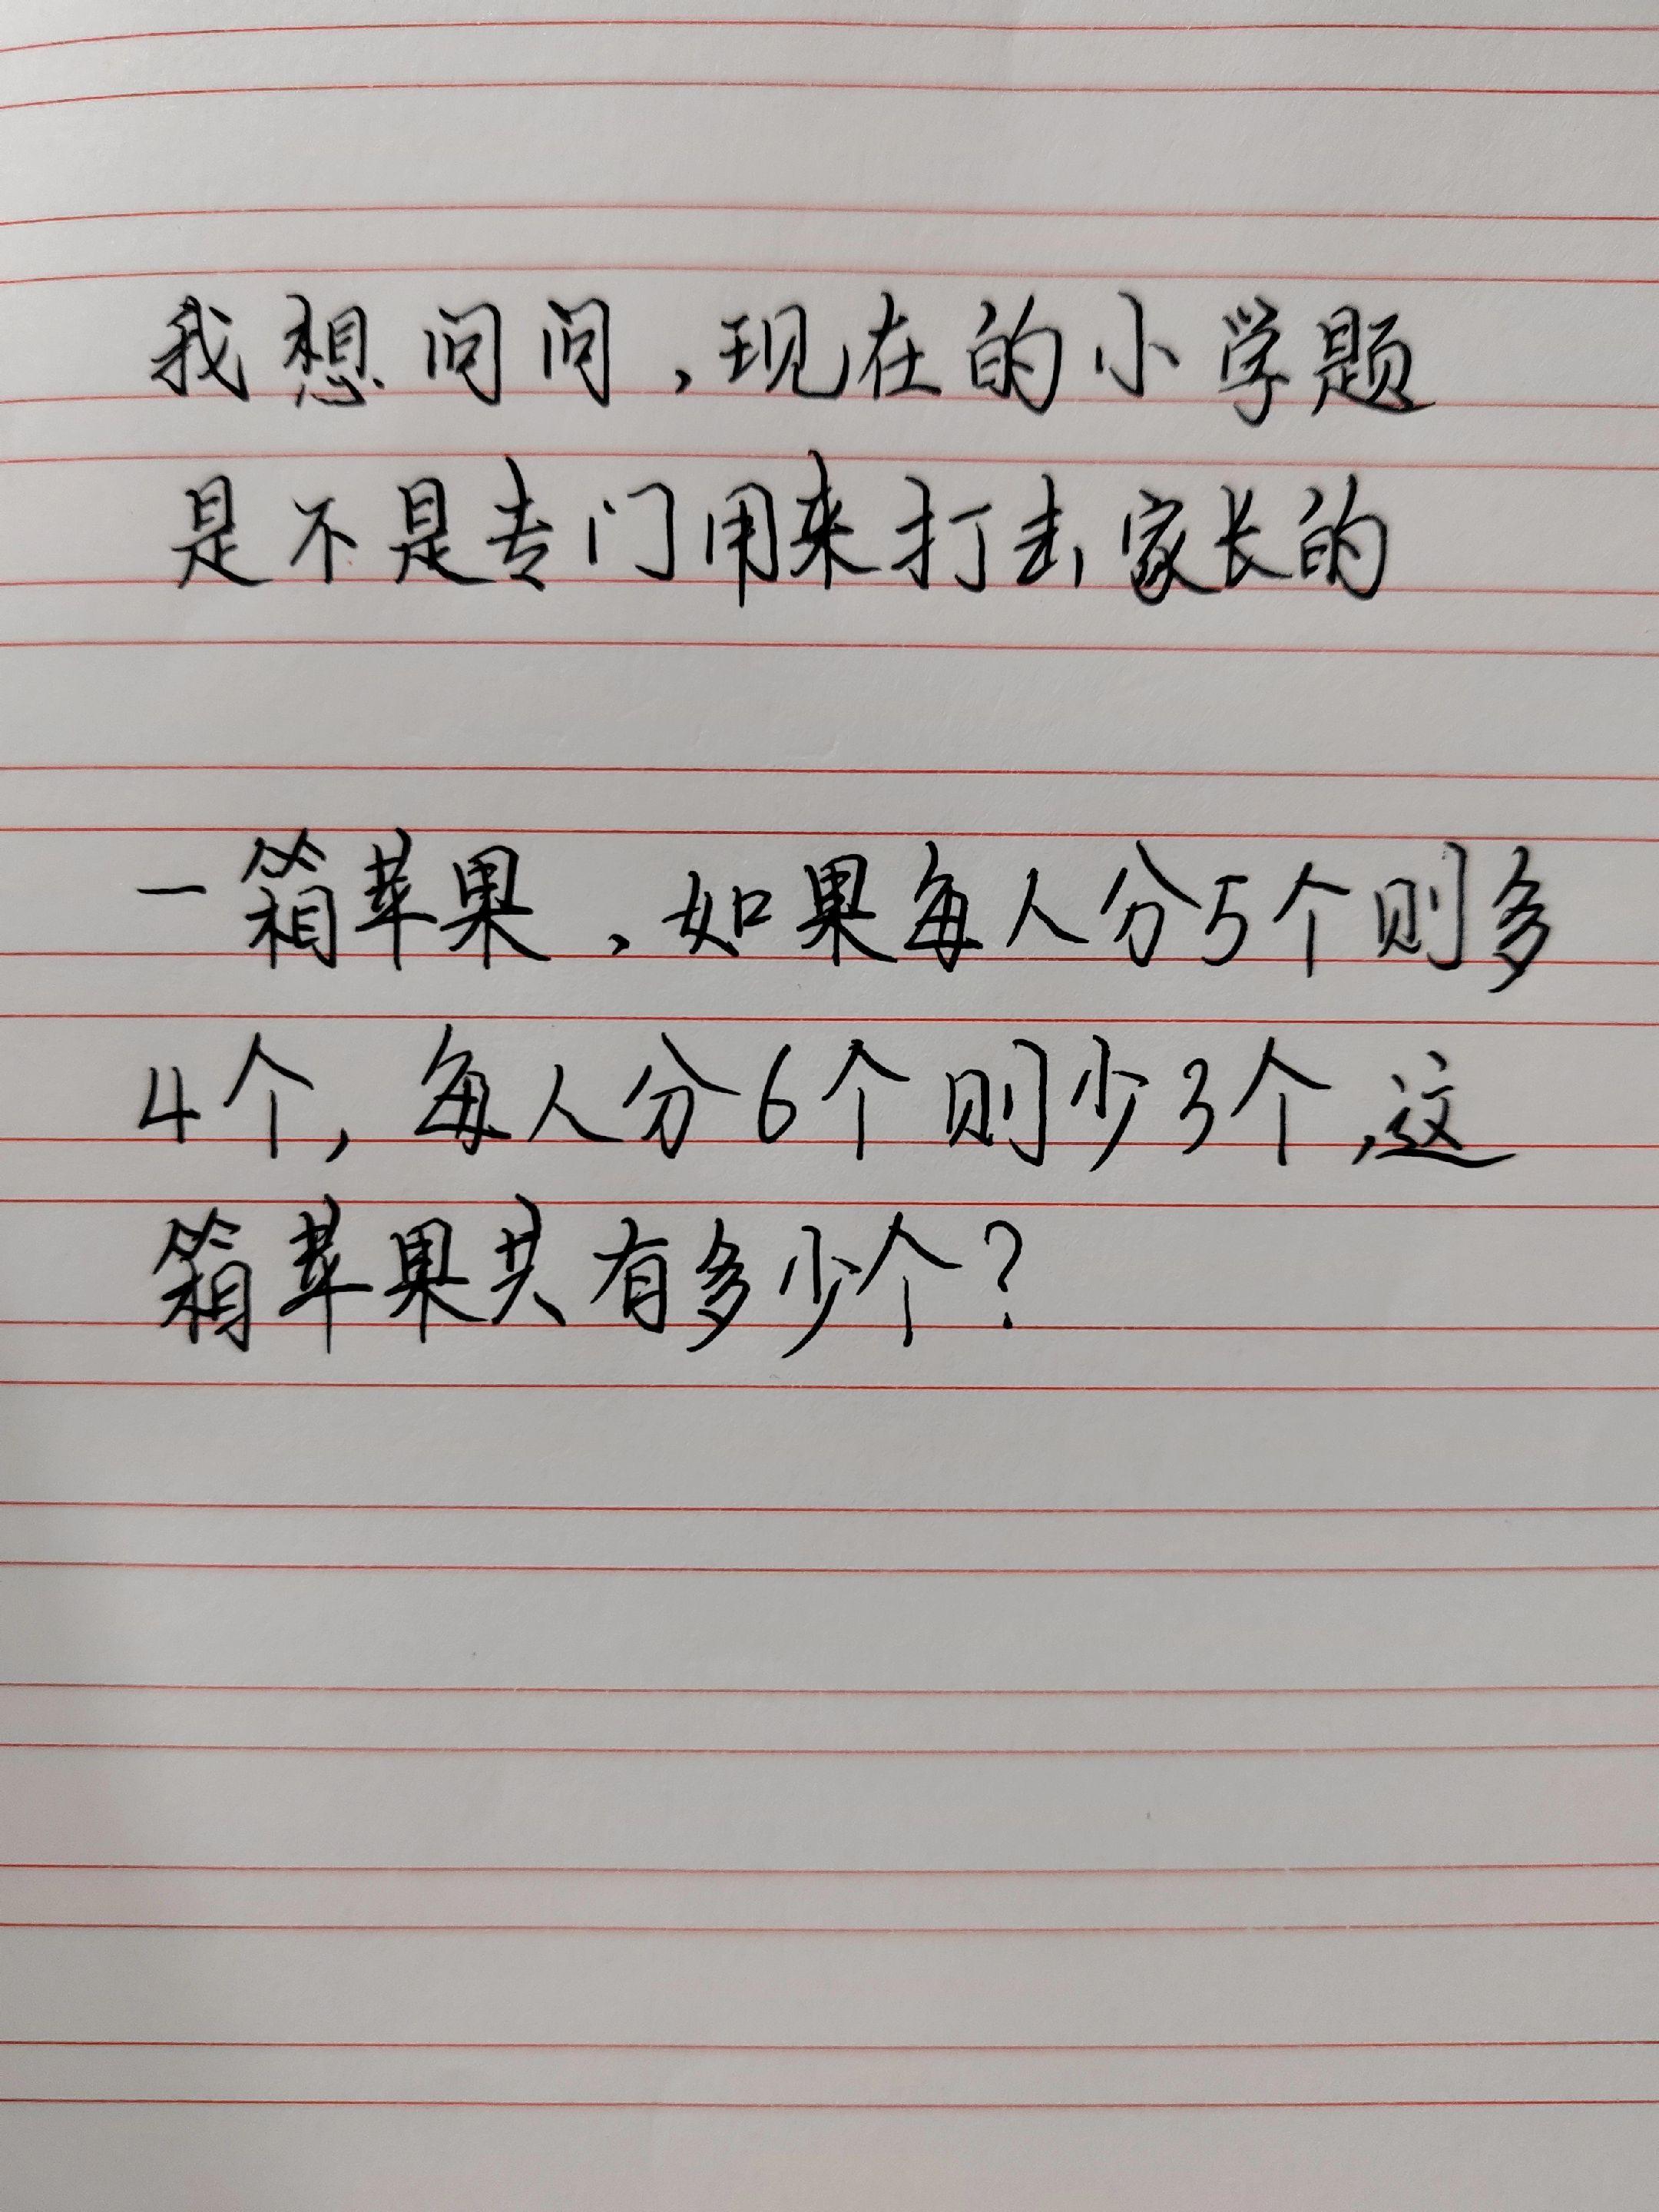 我想问问,现在的小学题
是不是专门用来打击家长的
一箱苹果,如果每人分5个则多
4个,每人分6个则少3个,这
箱苹果共有多少个?